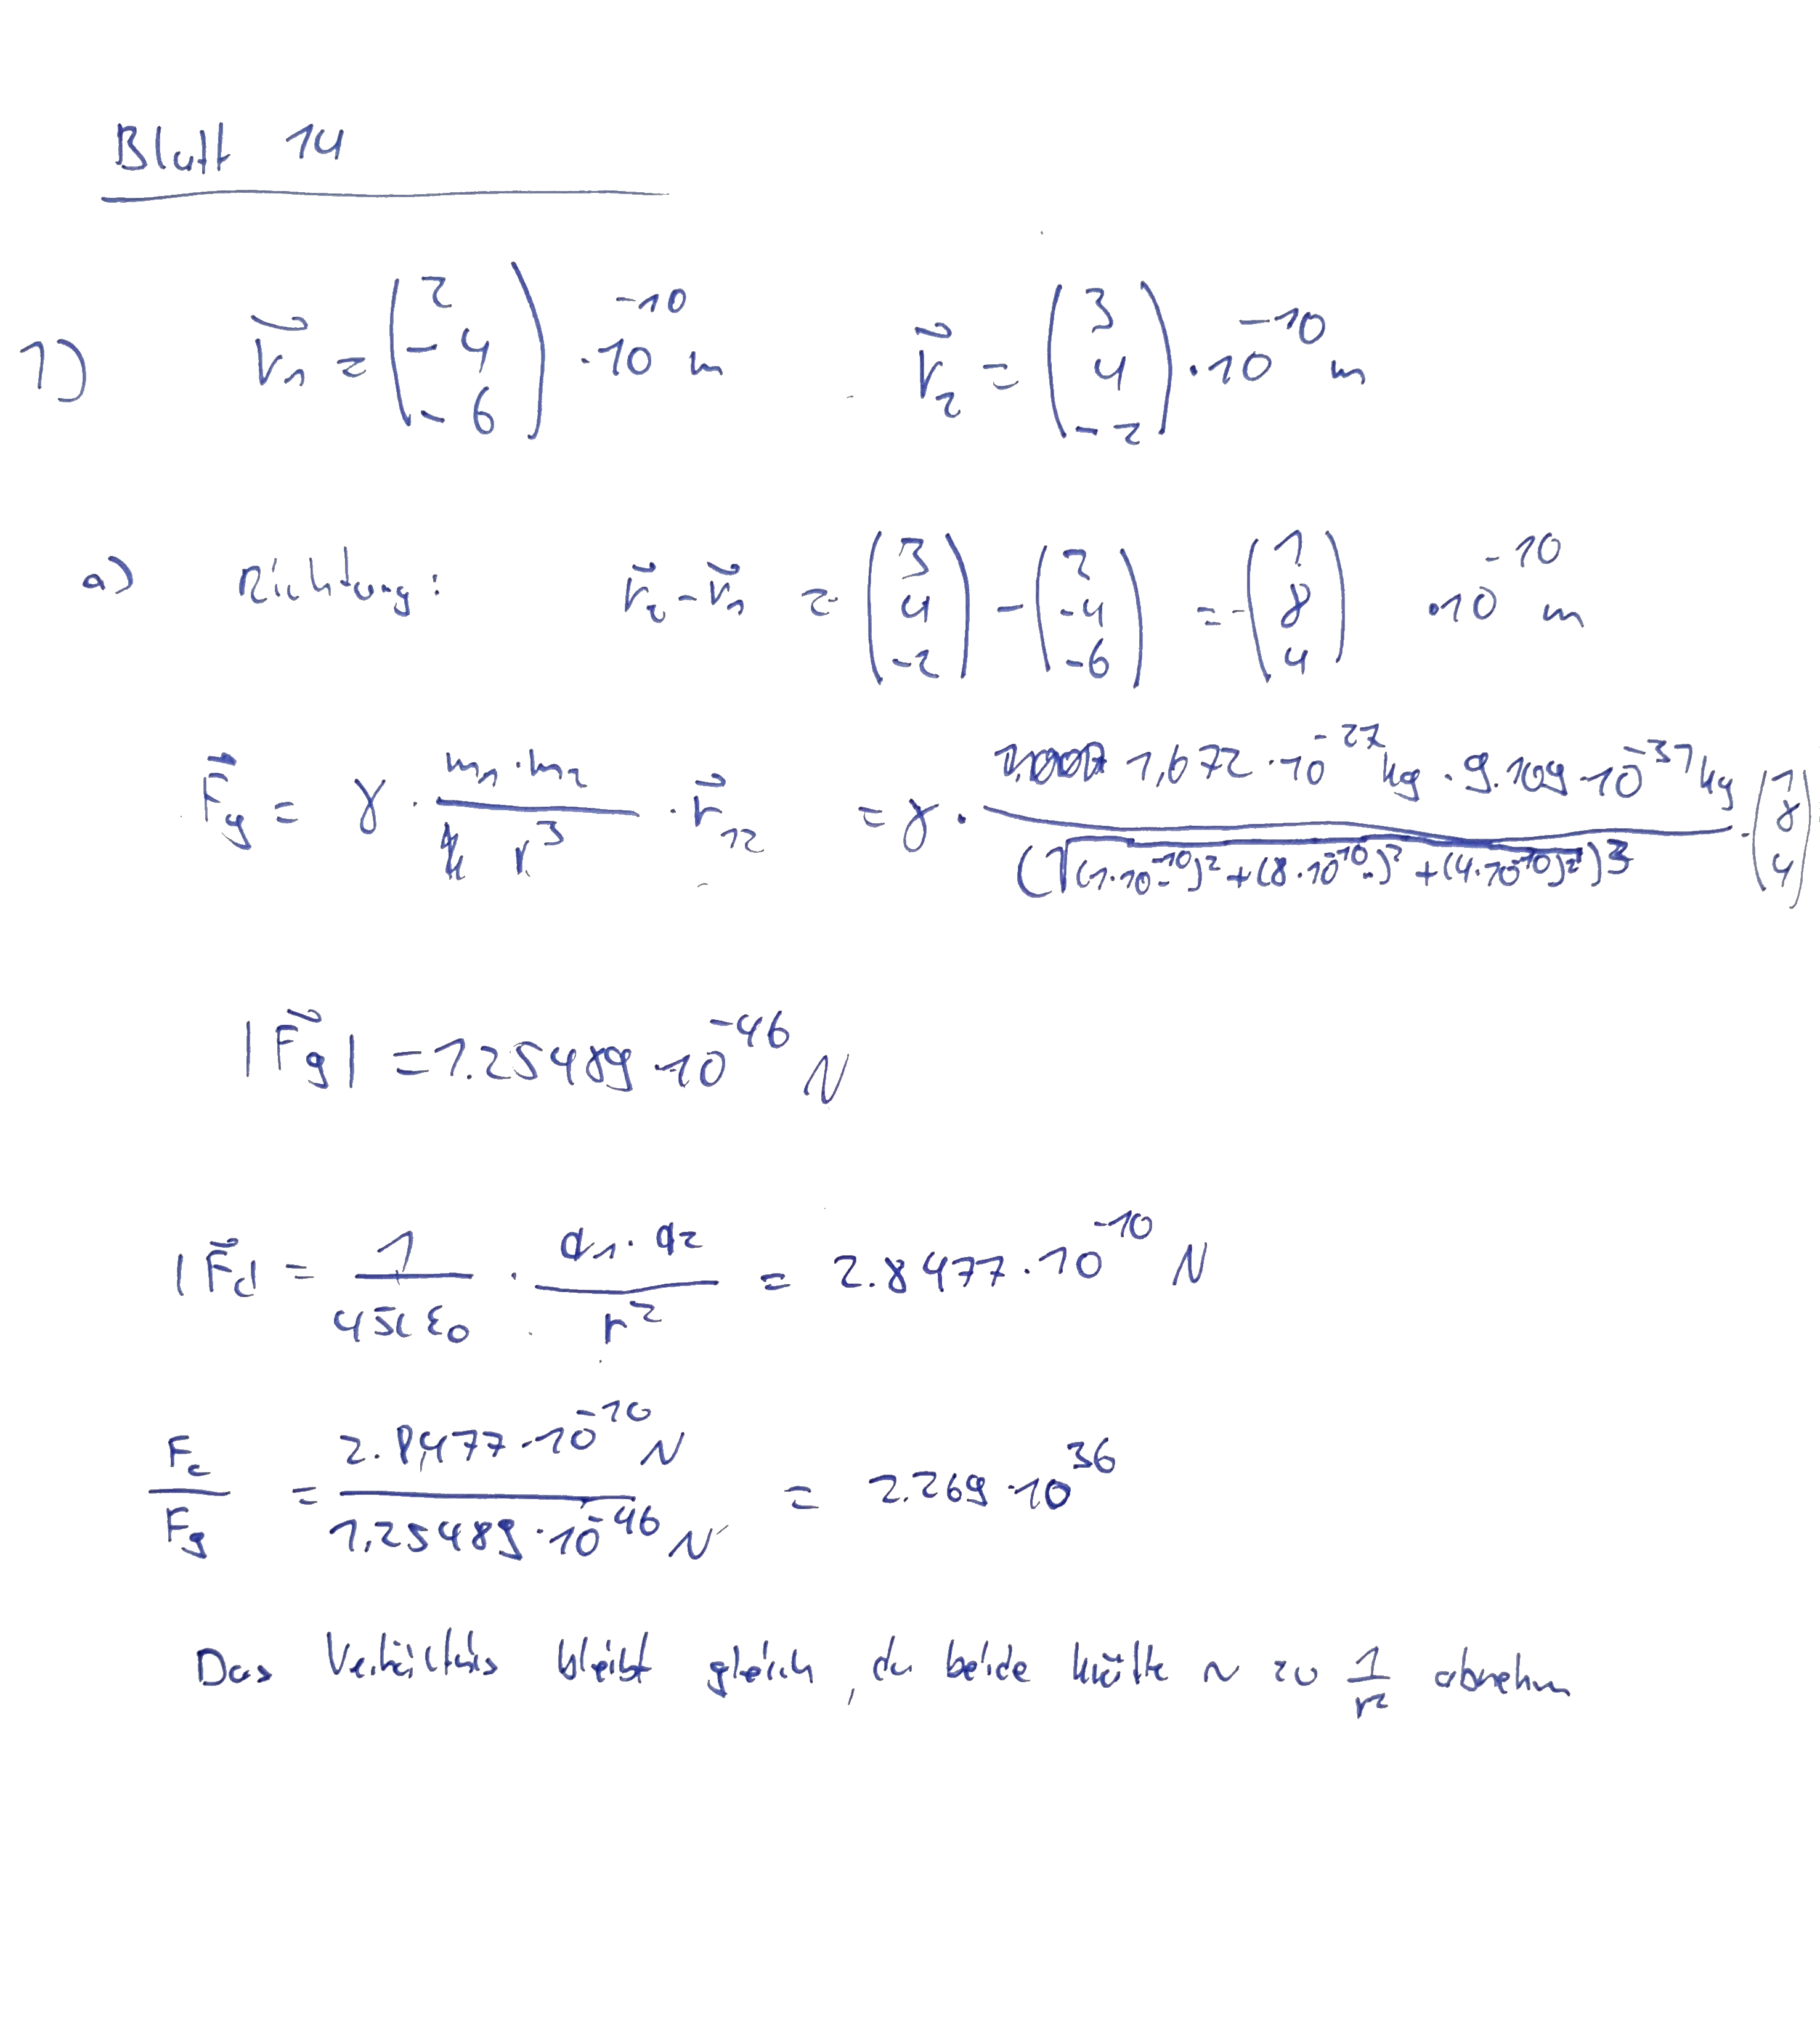 Blatt 14
1) r⃗₁ = (2 -4 -6) · 10⁻¹⁰ m r⃗₂ = (3 4 -2) · 10⁻¹⁰ m
a) Richtung: r⃗₂ - r⃗₁ = (3 4 -2) - (2 -4 -6) = (1 8 4) · 10⁻¹⁰ m
F⃗g = γ · m₁ · m₂ / r³ · r⃗₁₂ = γ · 1,672 · 10⁻²⁷ kg · 9.109 · 10⁻³¹ kg / (√((1·10⁻¹⁰)² + (8·10⁻¹⁰)² + (4·10⁻¹⁰)²))³ · (1 8 4)
|F⃗g| = 1.25489 · 10⁻⁴⁶ N
|F⃗c| = 1 / 4πε₀ · q₁ · q₂ / r² = 2.8477 · 10⁻¹⁰ N
Fc / Fg = 2.8477 · 10⁻¹⁰ N / 1.25489 · 10⁻⁴⁶ N = 2.269 · 10³⁶
Das Verhältnis bleibt gleich, da beide Kräfte ~ zu 1/r² abnehmen